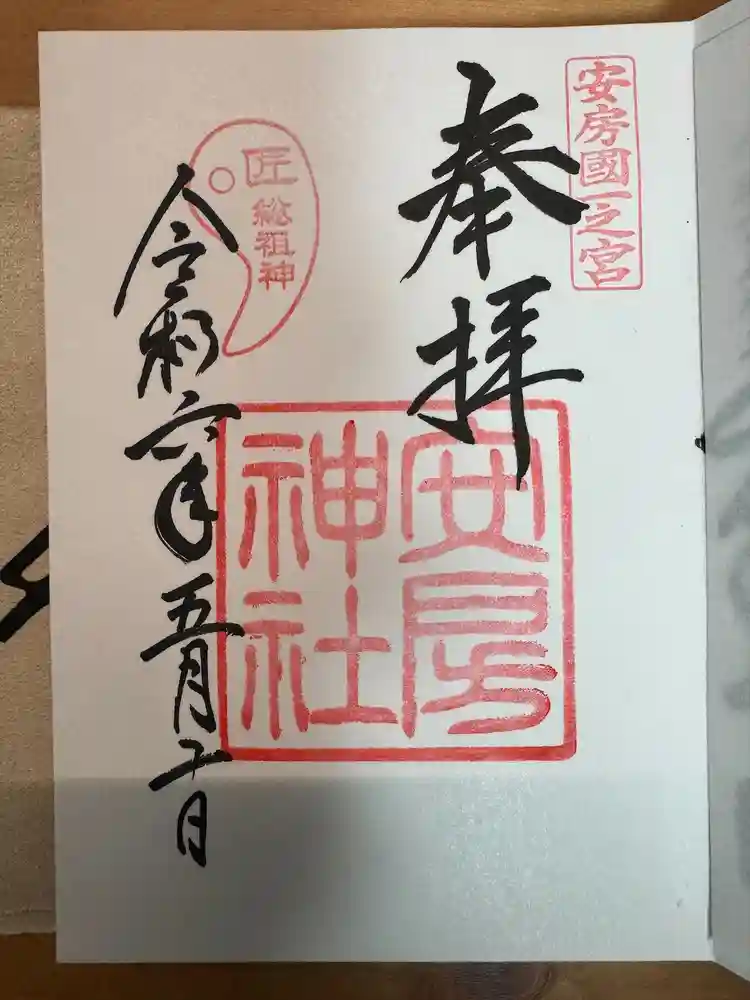 安房國一之宮
奉拝
安房
神社
匠
総祖神
令和六年五月二日